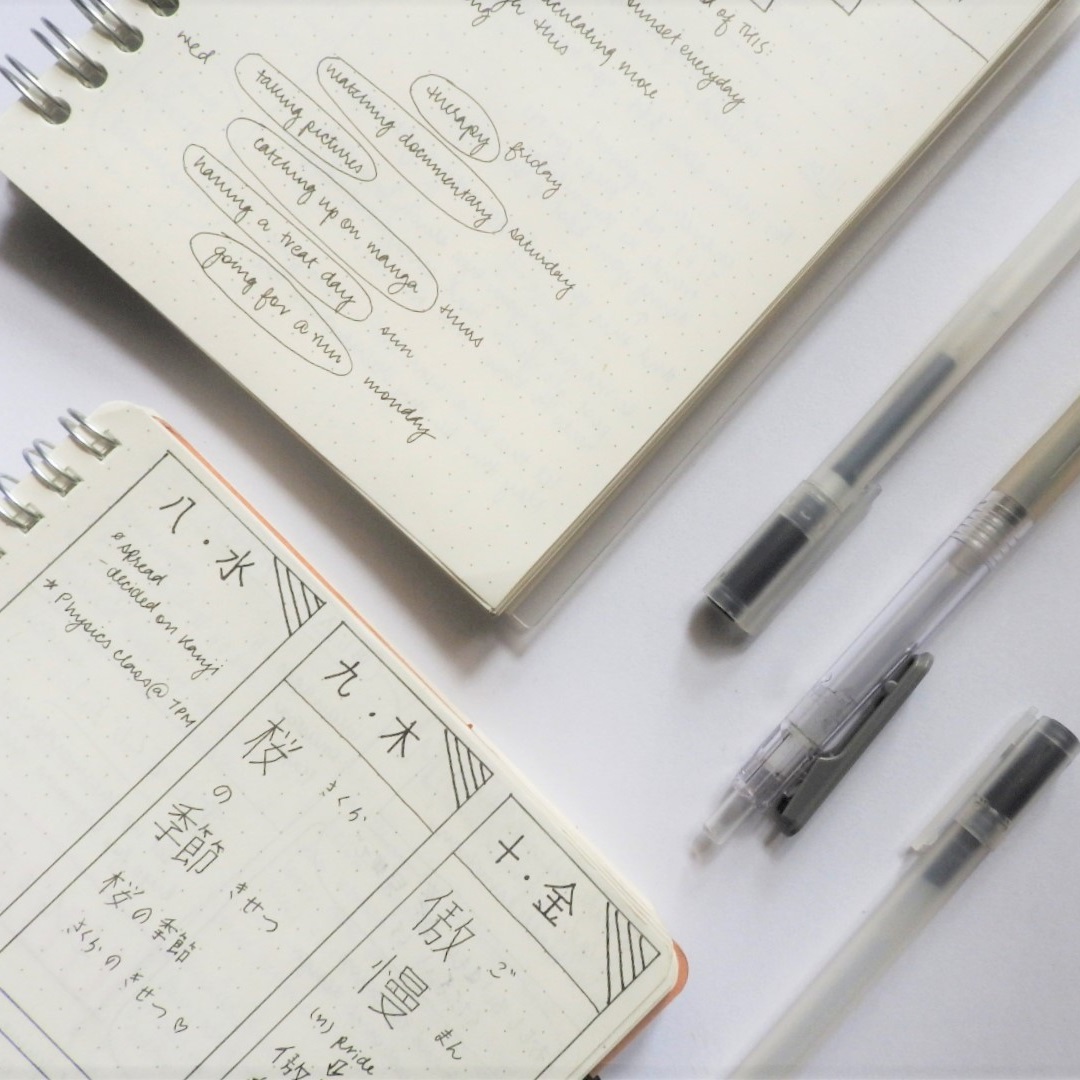 d of THIS:
sunset everyday
aculating more
this
wed
taking pictures
watching documentary
therapy
friday
saturday
catching up on manga
thurs
having a treat day
sun
going for a run
monday
八・水
spread
- decided on kanji
* Physics class @ 7PM
九・木
桜
さくら
の
季節
きせつ
桜の季節
さくらのきせつ♡
十・金
傲
ご
慢
まん
(n) pride
傲